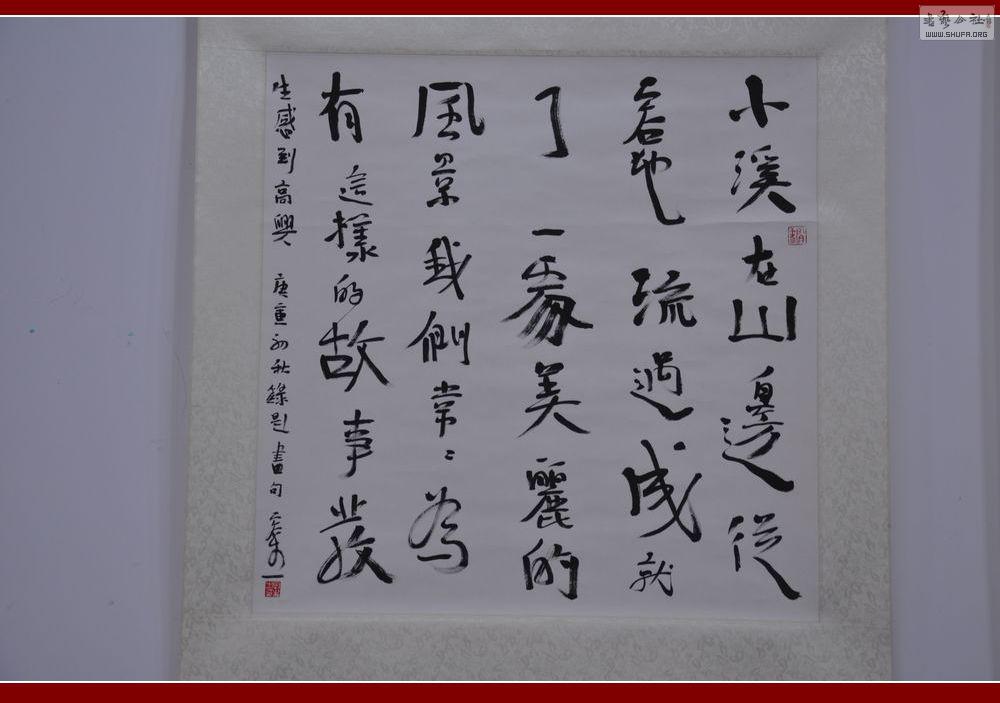 小溪在山邊從
容地流過成就
了一處美麗的
風景我們常々為
有這樣的故事發
生感到高興 庚寅初秋錄題畫句
書藝公社
WWW.SHUFA.ORG